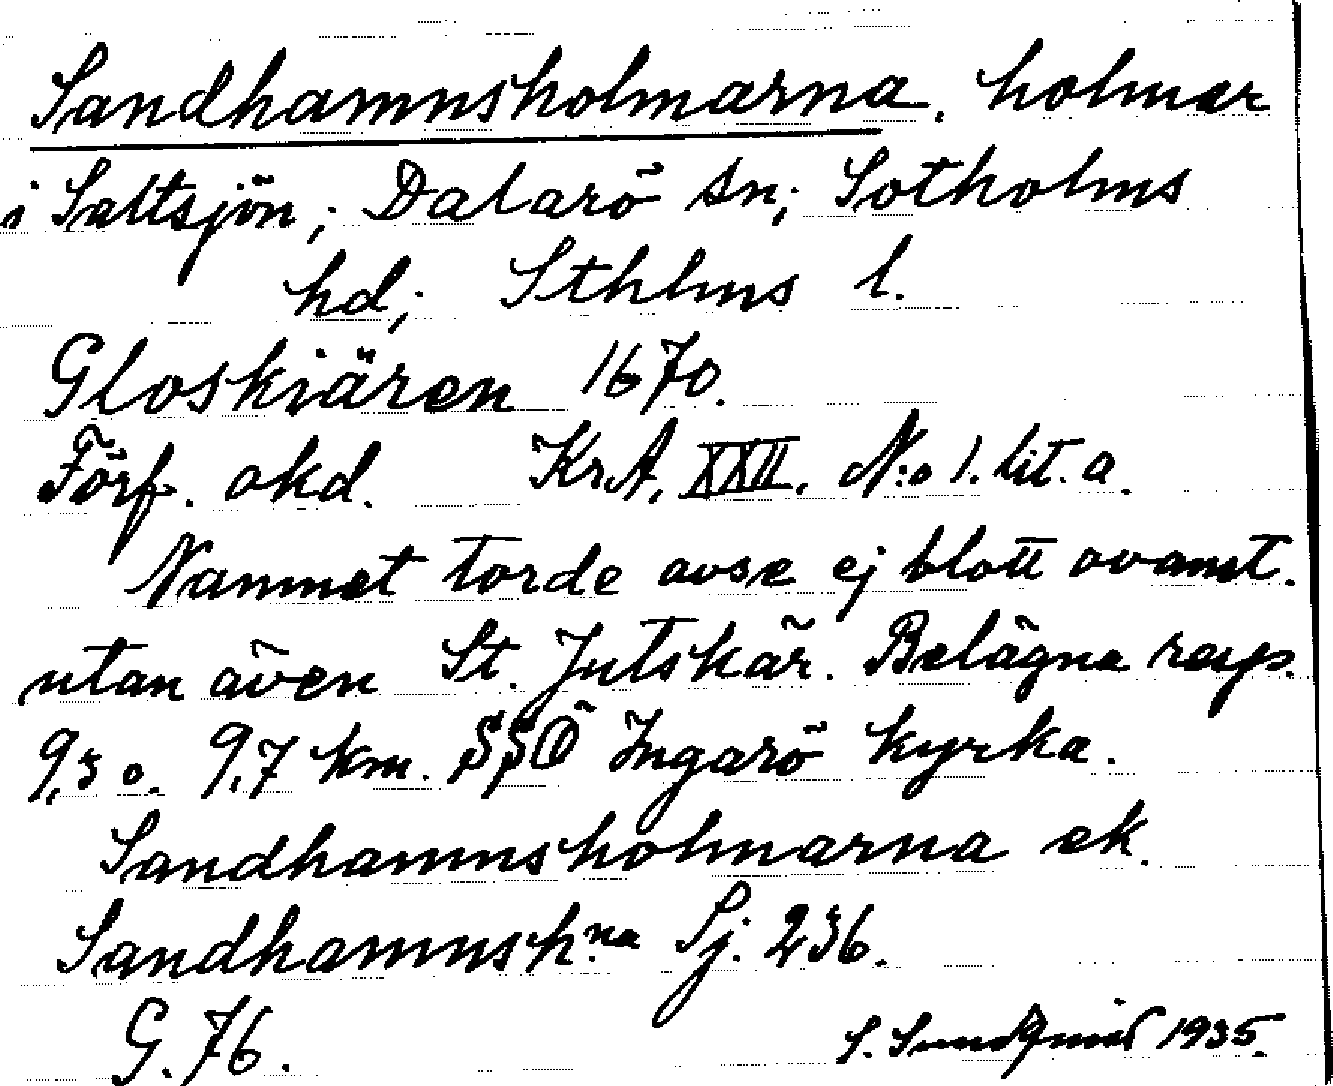 Sandhamnsholmarna. holmar
i Saltsjön; Dalarö sn; Sotholms
hd; Sthlms l.
Gloskiären 1670.
Förf. okd. KrA. XXII. N:o 1. lit. a.
Namnet torde avse ej blott ovanst.
utan även St. Jutskär. Belägna resp.
9,3 o. 9,7 km. SSÖ Ingarö kyrka.
Sandhamnsholmarna ek.
Sandhamnsh.na Sj. 236.
G. 76.
S. Sundqvist 1935.